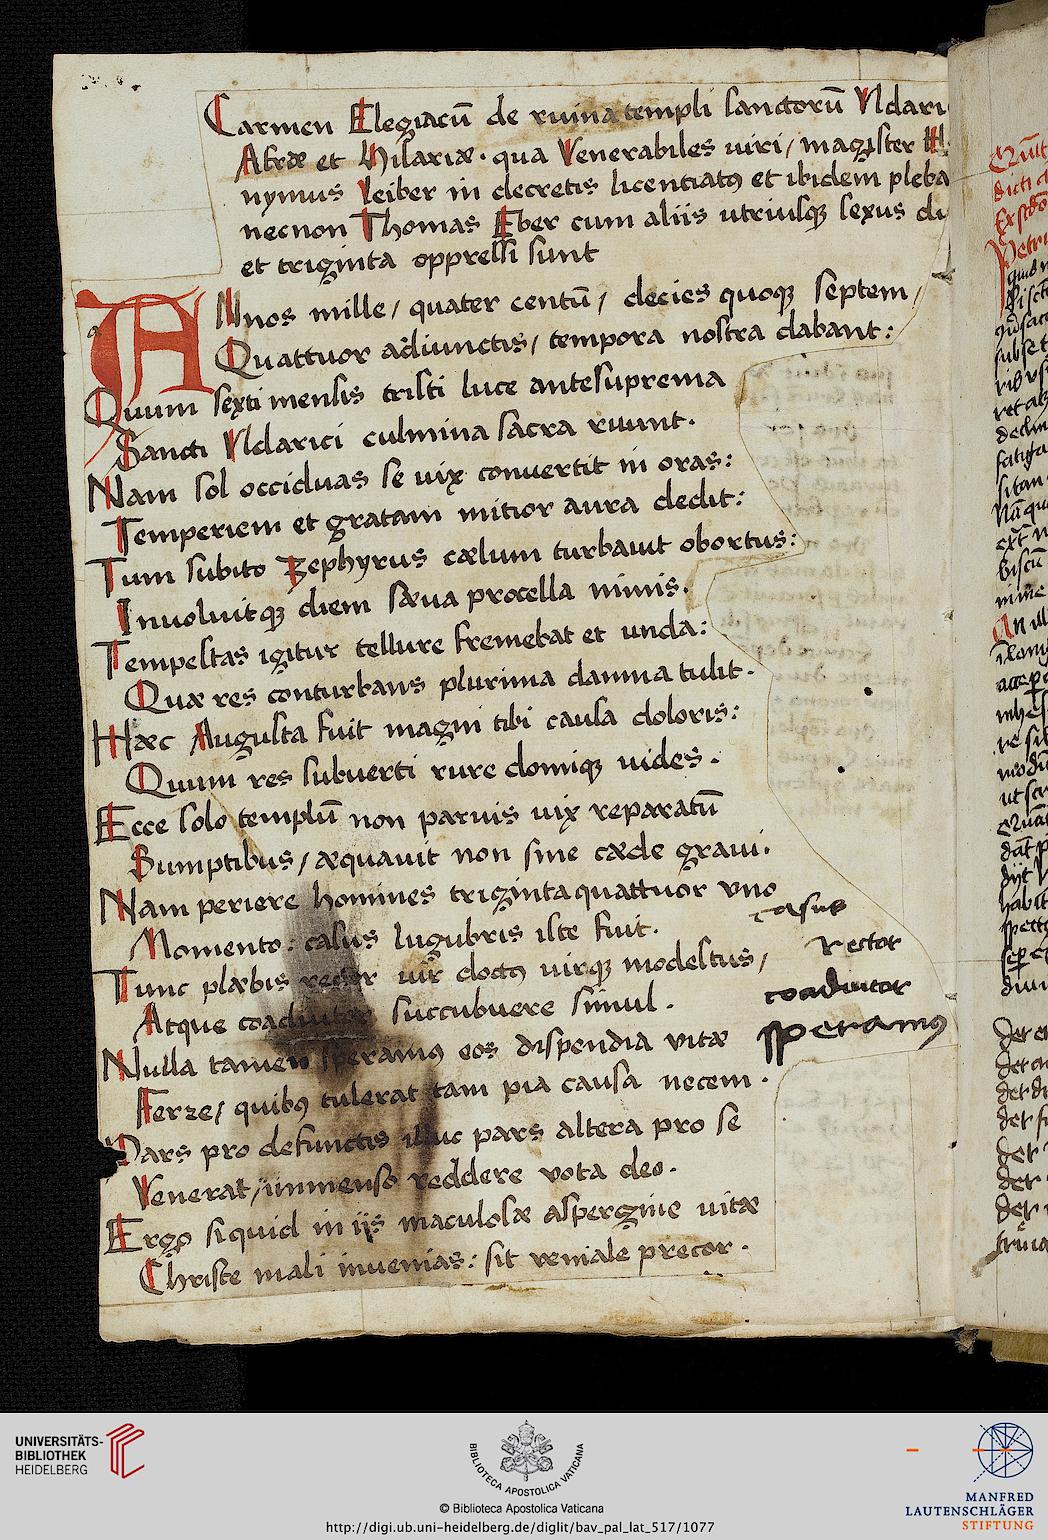 Carmen Elegiacū de ruina templi sanctorū Vldari
Afrae et Hilariæ. qua Venerabiles uiri / magister H
nymus Leiber in decretis licentiatꝯ et ibidem pleba
necnon Thomas Eber cum aliis utriusqꝫ sexus du
et triginta oppressi sunt
ANnos mille / quater centū / decies quoqꝫ septem /
Quattuor adiunctis / tempora nostra dabant:
Quum sexti mensis tristi luce antesuprema
Sancti Vldarici culmina sacra ruunt.
Nam sol occiduas se uix conuertit in oras:
Temperiem et gratam mitior aura dedit:
Tum subito Zephyrus cælum turbauit obortus:
Inuoluitqꝫ diem sæua procella nimis.
Tempestas igitur tellure fremebat et unda:
Quæ res conturbans plurima damna tulit.
Hæc Augusta fuit magni tibi causa doloris:
Quum res subuerti rure domiqꝫ uides.
Ecce solo templū non paruis uix reparatū
Sumptibus / æquauit non sine cæde graui.
Nam periere homines triginta quattuor vno
Momento: casus lugubris iste fuit.
casus
Tunc plæbis rector uir doctꝯ uirqꝫ modestus /
Rector
Atque coadiutor succubuere simul.
coadiutor
Nulla tamen speramꝯ eos dispendia vitæ
speramꝯ
Ferre / quibꝯ tulerat tam pia causa necem.
Pars pro defunctis illuc pars altera pro se
Venerat / immenso reddere vota deo.
Ergo siquid in ijs maculosæ aspergine uitæ
Christe mali inuenias: sit ueniale precor.
UNIVERSITÄTS-
BIBLIOTHEK
HEIDELBERG
BIBLIOTECA APOSTOLICA VATICANA
© Biblioteca Apostolica Vaticana
http://digi.ub.uni-heidelberg.de/diglit/bav_pal_lat_517/1077
MANFRED
LAUTENSCHLÄGER
STIFTUNG